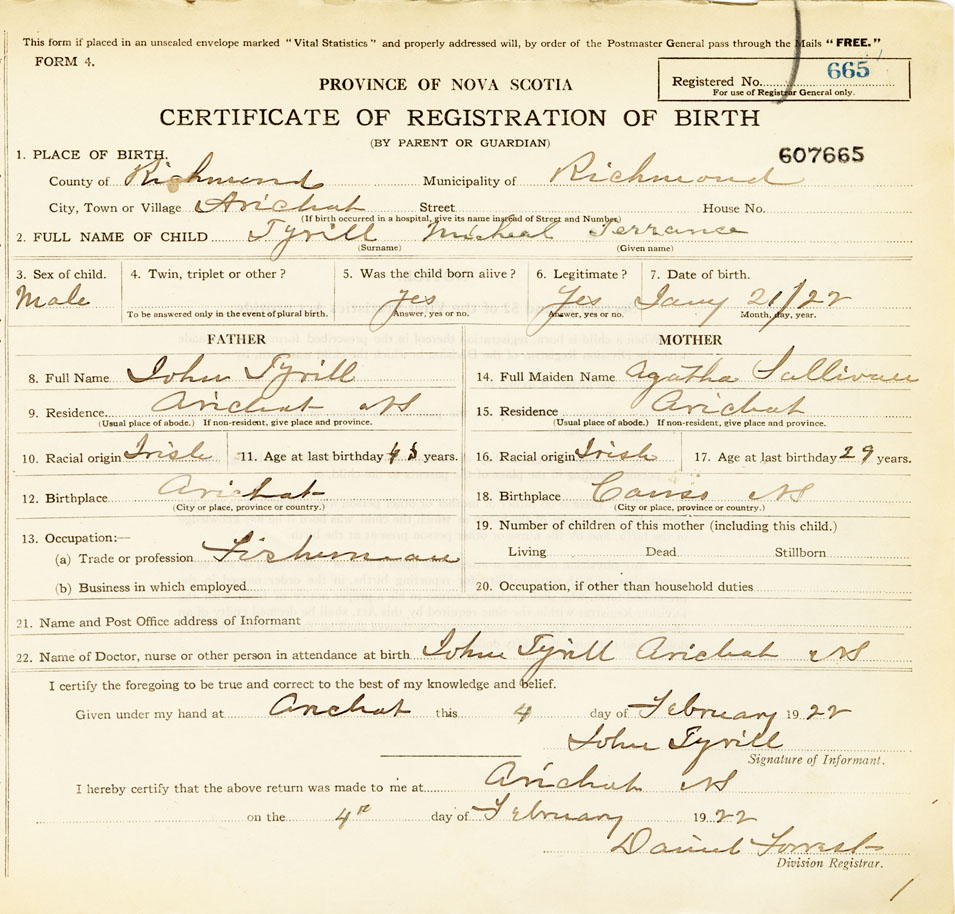 This form if placed in an unsealed envelope marked "Vital Statistics" and properly addressed will, by order of the Postmaster General pass through the Mails "FREE."
FORM 4.
Registered No. 665
For use of Registrar General only.
PROVINCE OF NOVA SCOTIA
CERTIFICATE OF REGISTRATION OF BIRTH
(BY PARENT OR GUARDIAN)
607665
1. PLACE OF BIRTH.
County of Richmond Municipality of Richmond
City, Town or Village Arichat Street House No.
(If birth occurred in a hospital, give its name instead of Street and Number)
2. FULL NAME OF CHILD Tyrill Micheal Terrance
(Surname) (Given name)
3. Sex of child. 4. Twin, triplet or other? 5. Was the child born alive? 6. Legitimate? 7. Date of birth.
Male yes Yes Jany 21/22
To be answered only in the event of plural birth. Answer, yes or no. Answer, yes or no. Month, day, year.
FATHER MOTHER
8. Full Name John Tyrill 14. Full Maiden Name Agatha Sullivan
9. Residence Arichat NS 15. Residence Arichat
(Usual place of abode.) If non-resident, give place and province. (Usual place of abode.) If non-resident, give place and province.
10. Racial origin Irish 11. Age at last birthday 43 years. 16. Racial origin Irish 17. Age at last birthday 29 years.
12. Birthplace Arichat 18. Birthplace Canso NS
(City or place, province or country.) (City or place, province or country.)
13. Occupation:— 19. Number of children of this mother (including this child.)
(a) Trade or profession Fisherman Living Dead Stillborn
(b) Business in which employed 20. Occupation, if other than household duties
21. Name and Post Office address of Informant
22. Name of Doctor, nurse or other person in attendance at birth John Tyrill Arichat NS
I certify the foregoing to be true and correct to the best of my knowledge and belief.
Given under my hand at Arichat this 4 day of February 1922
John Tyrill
Signature of Informant.
I hereby certify that the above return was made to me at Arichat NS
on the 4th day of February 1922
Daniel Forrest
Division Registrar.